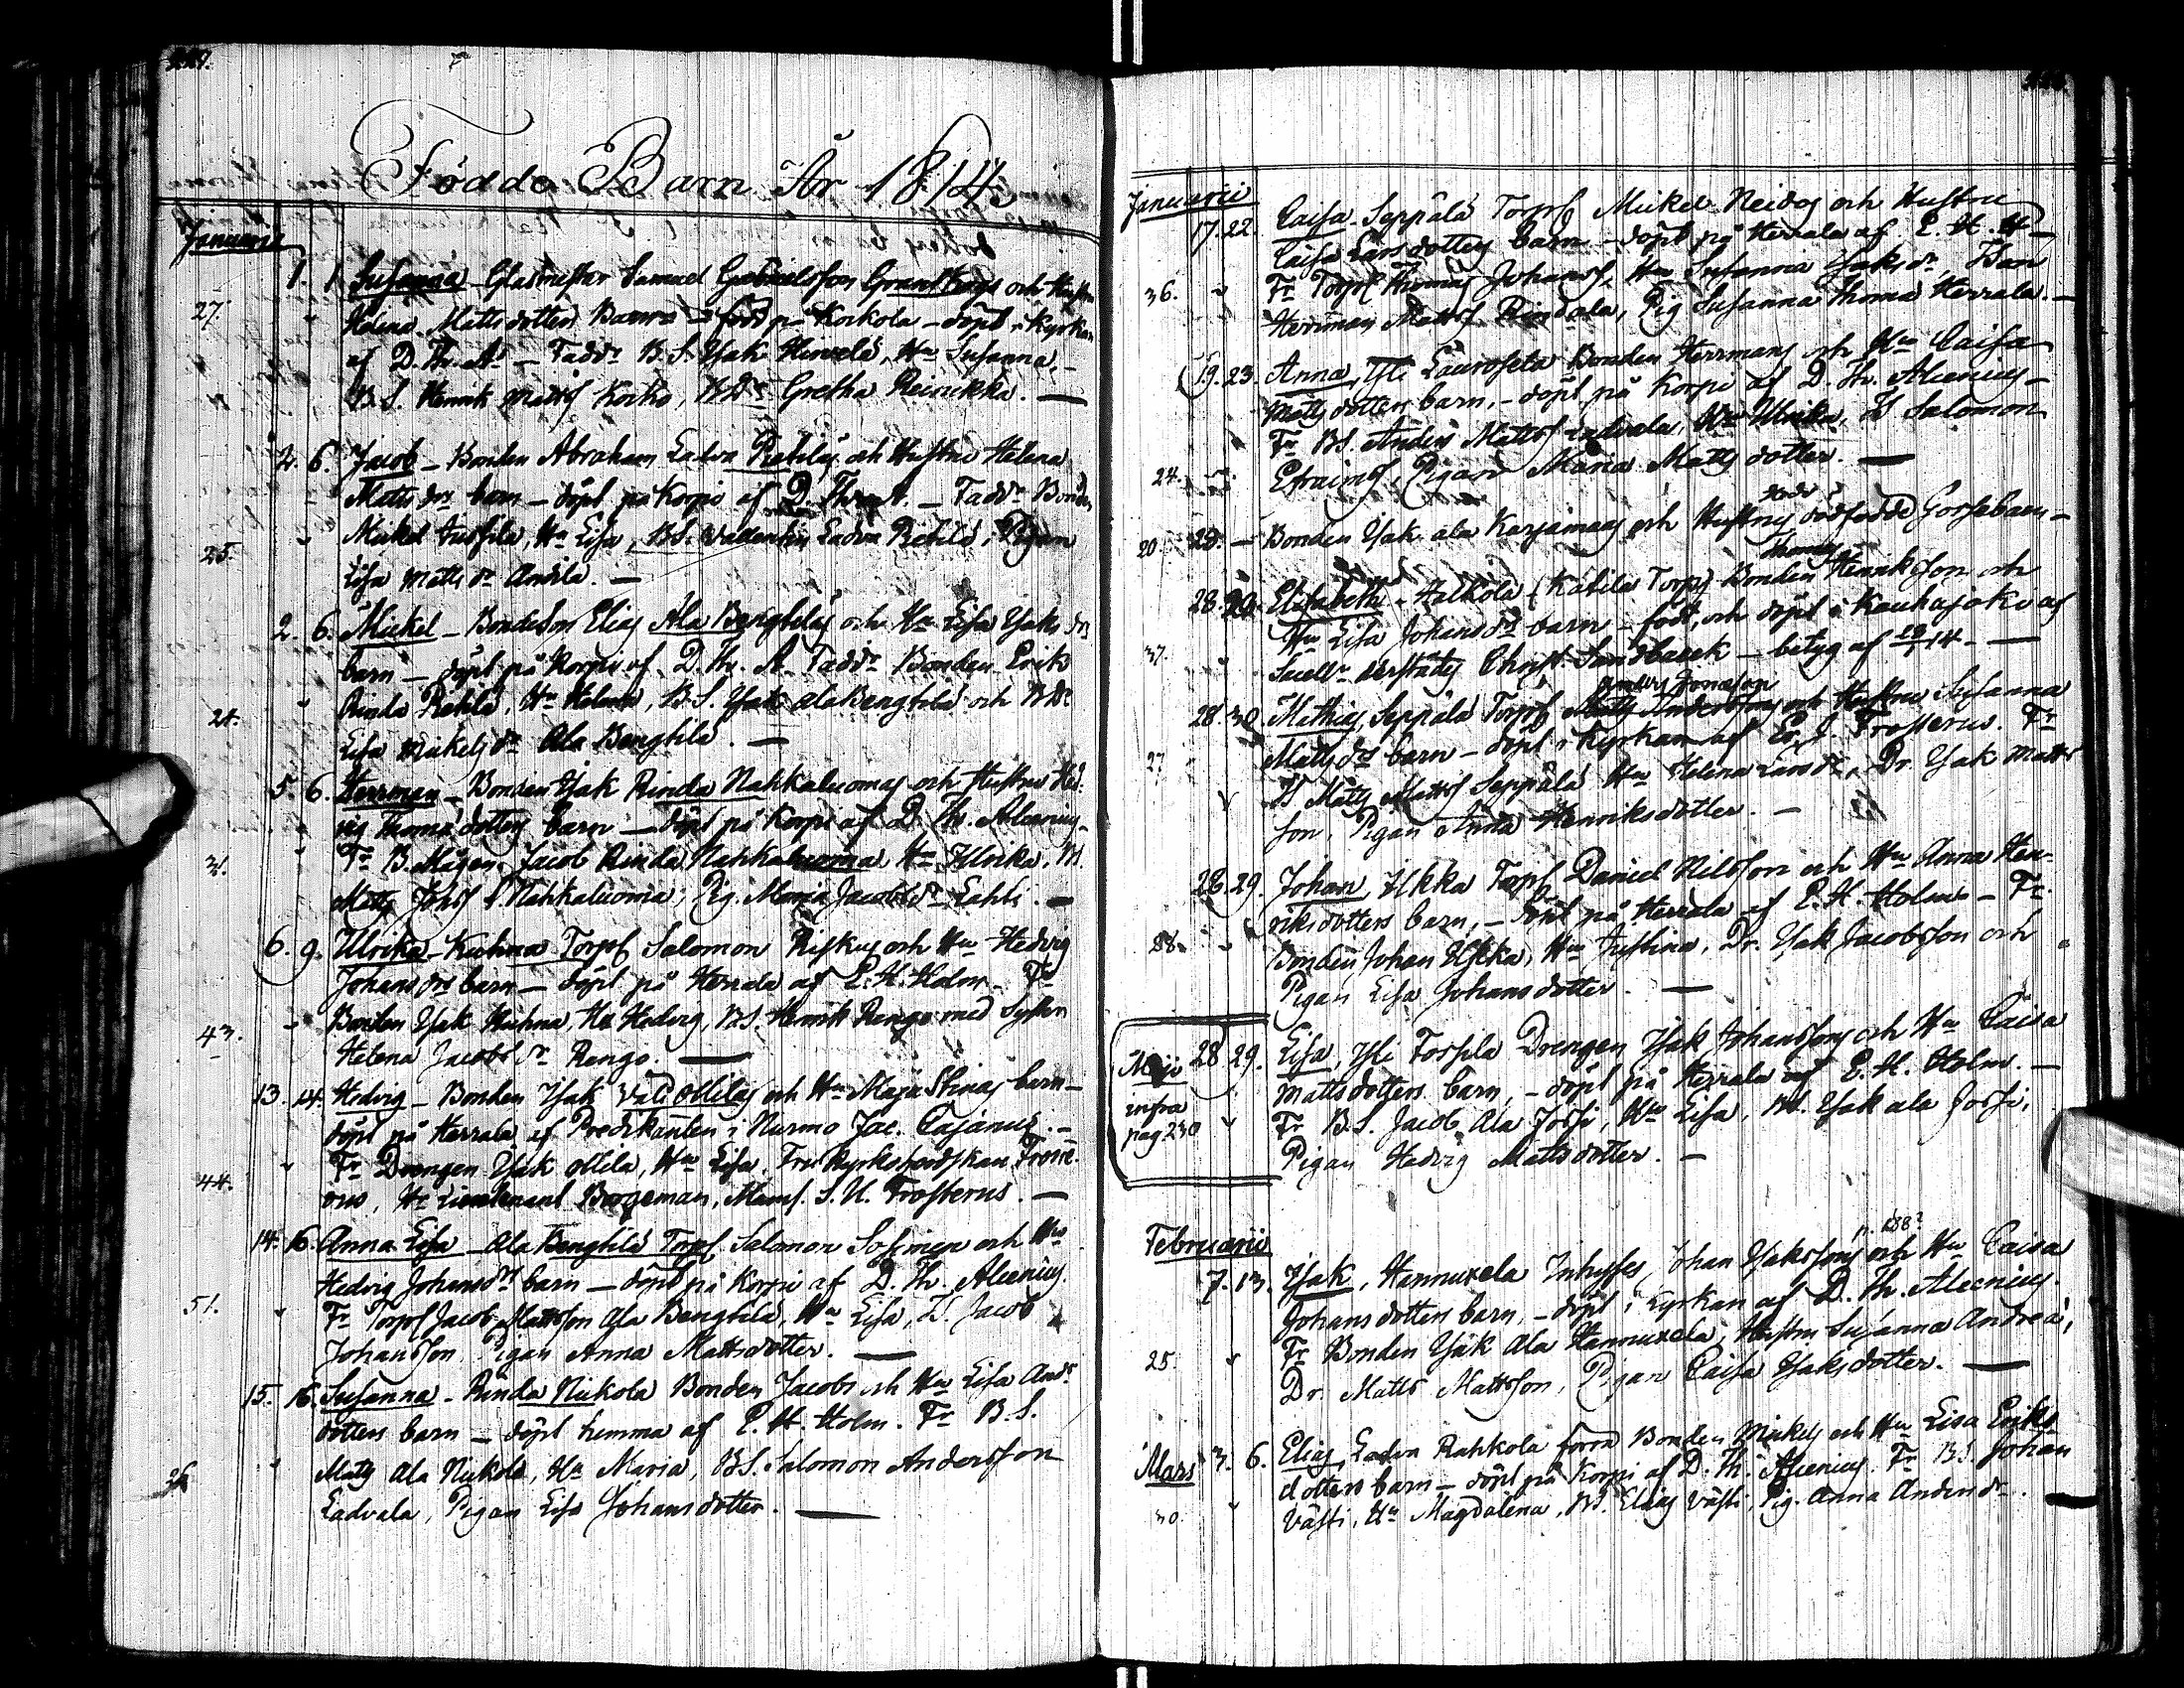 Födde Barn År 1814
Januarii
1. 1 Susanna Glasmästar Samuel Gabrielsson Granskogs och Hustru
27. Helena Mattsdotters Barn – född på Korkola – döpt i Kyrkan
af D. Th. A. – Faddr B. S. Isak Hirvelä, Hu Susanna,
B. S. Henrik Matts Korko, BDr Gretha Reinikka. —
2. 6. Jacob – Bonden Abraham Ladva Pietiläs och Hustru Helena
Matts drs barn – döpt på Korpi af D. Th. A. – Faddr Bonden
Mickel Jussila, Hu Lisa, B.S. Valentin Ladva Pietilä, Pigan
25. Lisa Matts dr Anttila. —
2. 6. Mickel – BondeSon Elias Ala Bengtiläs och Hu Lisa Isaks drs
barn – döpt på Korpi af D. Th. A. Faddr Bonden Erik
Rinda Pietilä, Hu Helena, B.S. Isak Ala Bengtilä och BDr
24. Lisa Mickels dr Ala Bengtilä. —
5. 6. Herrman – Bonden Isak Rinda Nahkaluomas och Hustru Hed-
vig Thomä dotters barn – döpt på Korpi af D. Th. Alcenius
31. Fr B. Mågen Jacob Rinda Nahkaluoma Hu Ulrika, BS.
Matts Johss Nahkaluoma, Pig. Maria Jacobs dr Lahti. —
6. 9. Ulrika – Kuhna Torpf Salomon Riskus och Hu Hedvig
Johans drs barn – döpt på Herrala af E. H. Holm – Fr
43. Bonden Isak Kuhna, Hu Hedvig, BS. Henrik Rengo med Systern
Helena Jacobs dr Rengo. —
13. 14. Hedvig – Bonden Isak Väli Ollilas och Hu Maja Stinas barn –
döpt på Herrala af Predikanten i Nurmo Jac. Cajanus. –
44. Fr Drengen Isak Ollila, Hu Lisa, Fru Kyrkoherdskan Froste-
rus, Hr Lieutenant Bergeman, Mams. S. U. Frosterus. —
14. 16. Anna Lisa – Ala Bengtilä Torpf. Salomon Sosimen och Hu
Hedvig Johans drs barn – döpt på Korpi af D. Th. Alcenius.
51. Fr Torpf Jacob Mattsson Ala Bengtilä, Hu Lisa, Is Jacob
Johansson, Pigan Anna Mattsdotter. —
15. 16. Susanna – Rinda Nickola Bonden Jacobs och Hu Lisa Andrs
dotters barn – döpt hemma af E. H. Holm. Fr B. S.
Matts Ala Nickola, Hu Maria, BS. Salomon Andersson
Ladvala, Pigan Lisa Johansdotter. —
Januarii
17. 22. Caisa Seppälä Torpf Mickel Neidos och Hustru
Caisa Larsdotters barn – döpt på Herrala af E. H. H –
36. Fr Torpf Thomas Johanss, Hu Susanna Isaks dr, Bon
Herrman Mattss Rindala, Pig Susanna Thomä Herrala. –
19. 23. Anna, Yli Lauroseta Bonden Herrmans och Hu Caisa
Matts dotters barn, – döpt på Korpi af D. Th. Alcenius –
Fr BS. Anders Mattss Ladvala, Hu Ulrika, Is Salomon
24. Efraims, Pigan Maria Matts dotter. —
20 23. – Bonden Isak ala Karjamaas och Hustrus dödfödde Gossebarn –
28. 29. Elisabeth – Halkola (Katila Torp) Bonden Thomas Henrikson och
37. Hu Lisa Johans drs barn – född, och döpt i Kauhajoki af
Sacell. derstädes Christ. Sundbaeck – betyg af 14 – —
28. 30. Mathias, Seppälä Torpf Anders Jonasson och Hustru Susanna
27 Matts drs barn – döpt i Kyrkan af Er. J. Frosterus. Fr
Is Matts Mattss Seppälä Hu Helena Lars dr, Dr. Isak Matts
son, Pigan Anna Henriksdotter. —
28. 29. Johan, Ilkka Torpf Daniel Nilsson och Hu Anna Hen-
riksdotters barn, – döpt på Herrala af E. H. Holm – Fr
88. Bonden Johan Ilkka, Hu Justina, Dr. Isak Jacobsson och
Pigan Lisa Johansdotter. —
Maji infra pag 230
28 29. Lisa, Yli Forsila Drengen Isak Johanssons och Hu Caisa
Mattsdotters barn, – döpt på Herrala af E. H. Holm. —
Fr B.S. Jacob Ala Jossi, Hu Lisa, BS. Isak ala Jossi,
Pigan Hedvig Mattsdotter. —
Februarii
7. 13. Isak, Hannuxela Inhyses Johan Isakssons och Hu Caisa
Johansdotters barn, – döpt i Kyrkan af D. Th. Alcenius
25. Fr Bonden Isak Ala Hannuxela, Hustru Susanna Andreä,
Dr. Matts Mattsson, Pigan Caisa Isaksdotter. —
Mars 3. 6. Elias, Ladva Rahkola förra Bonden Mickels och Hu Lisa Eriks
dotters barn – döpt på Korpi af D. Th. Alcenius. Fr BS. Johan
30. Västi, Hu Magdalena, BS. Elias Västi, Pig. Anna Anders dr.